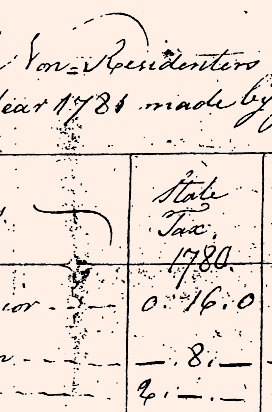 Non=Residenters
ear 1781 made by
State
Tax.
1780.
ior - - - - 0. 16. 0
- - - - - — . 8. —
- - - - - 2. — . —